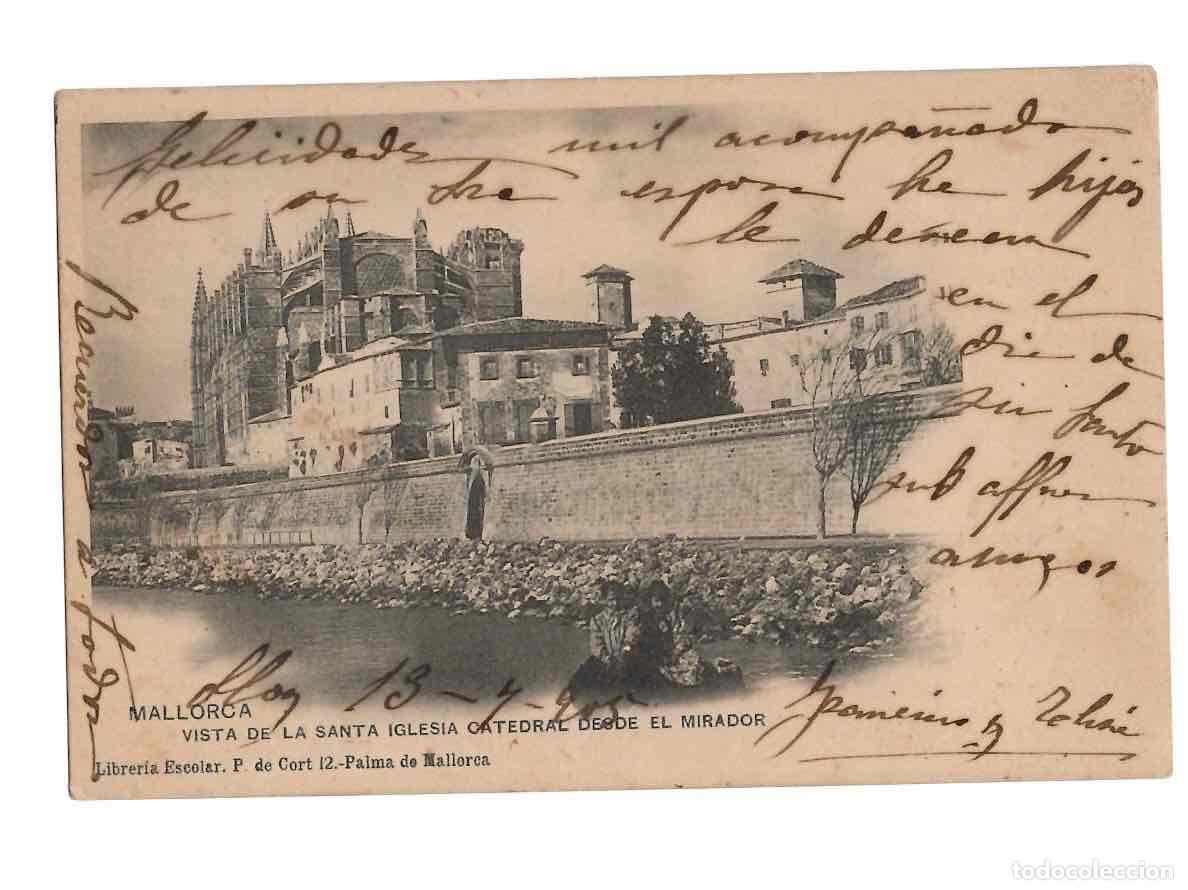 Felicidades mil acompañado
de su esposa he hijos
le desean
en el
día de
su Santo
sus affmos
amigos
Recuerdos a todos
13-7-905
y
MALLORCA
VISTA DE LA SANTA IGLESIA CATEDRAL DESDE EL MIRADOR
Librería Escolar. P. de Cort 12.-Palma de Mallorca
todocoleccion